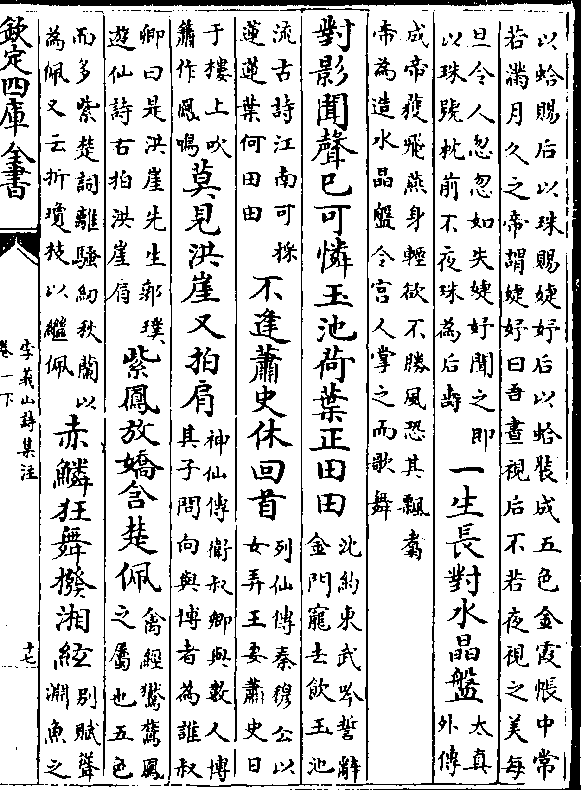 以蛤賜后以珠賜婕妤后以蛤裝成五色金霞帳中常
若滿月久之帝謂婕妤曰吾晝視后不若夜視之美每
旦令人忽忽如失婕妤聞之即
以珠號枕前不夜珠為后壽
一生長對水晶盤
太真
外傳
成帝獲飛燕身輕欲不勝風恐其飄翥
帝為造水晶盤令宫人掌之而歌舞
對影聞聲已可憐玉池荷葉正田田
沈約東武吟誓辭
金門寵去飲玉池
流古詩江南可採
蓮蓮葉何田田
不逢蕭史休回首
列仙傳秦穆公以
女弄玉妻蕭史日
于樓上吹
簫作鳳鳴
莫見洪崖又拍肩
神仙傳衛叔卿與數人博
其子問向與博者為誰叔
卿曰是洪崖先生郭璞
遊仙詩右拍洪崖肩
紫鳳放嬌含楚佩
禽經鸑鷟鳳
之屬也五色
而多紫楚詞離騷紉秋蘭以
為佩又云折瓊枝以繼佩
赤鱗狂舞撥湘絃
别賦聳
淵魚之
欽定四庫全書
李義山詩集注
卷一下
十七